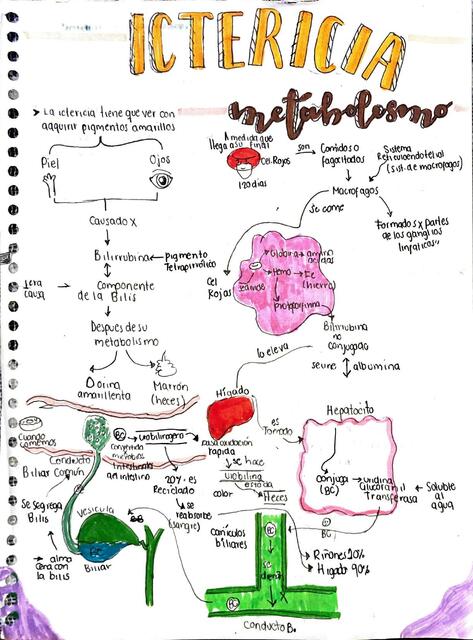 ICTERICIA
metabolosmo
➤ La ictericia tiene que ver con
adquirir pigmentos amarillos
Piel
Ojos
Causado x
Bilirrubina ← pigmento
Tetrapirrólico
1era causa → Componente
de la Bilis
Despues de su
metabolismo
Orina
amarillenta
Marrón
(heces)
A medida que
llega a su final
Cel. Rojos
120 días
son
Comidos o
fagocitados
Sistema
(sist. de macrofagos)
Macrofagos
se come
Formados x partes
de los ganglios
linfaticos"
Cel
Rojas
Globina → amino
acidos
Hemo → Fe
(hierro)
Bilirrubina
no
conjugada
lo eleva
se une ↕ albumina
Hígado
es
Tomado
Hepatocito
conjuga → 
(BC)
Transferasa
← Soluble
al
agua
BC
Cuando
comemos
Conducto
Biliar Común
BC → urobilinogeno
intestinal
pasa oxidación
rapida
se hace
color
Heces
20% es
Reciclado
se
reabsorbe
(sangre)
Se segrega
Bilis
Vesicula
BC
Biliar
→ alma
cena con
la bilis
canículos
biliares
BC
BC
Conducto B.
Riñones 10%
Higado 90%